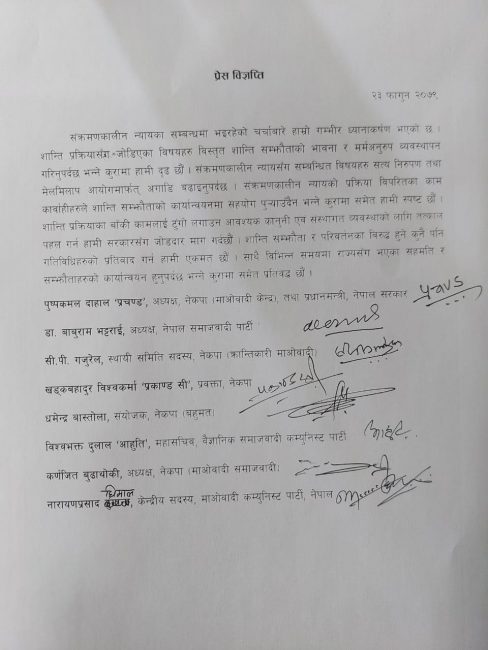 प्रेस विज्ञप्ति
२३ फागुन २०७९
संक्रमणकालीन न्यायका सम्बन्धमा भइरहेको चर्चाबारे हाम्रो गम्भीर ध्यानाकर्षण भएको छ ।
शान्ति प्रक्रियासँग जोडिएका विषयहरु विस्तृत शान्ति सम्झौताको भावना र मर्मअनुरुप व्यवस्थापन
गरिनुपर्दछ भन्ने कुरामा हामी दृढ छौं । संक्रमणकालीन न्यायसँग सम्बन्धित विषयहरु सत्य निरुपण तथा
मेलमिलाप आयोगमार्फत् अगाडि बढाइनुपर्दछ । संक्रमणकालीन न्यायको प्रक्रिया विपरितका काम
कारवाहीहरुले शान्ति सम्झौताको कार्यान्वयनमा सहयोग पुऱ्याउँदैन भन्ने कुरामा समेत हामी स्पष्ट छौं ।
शान्ति प्रक्रियाका बाँकी कामलाई टुंगो लगाउन आवश्यक कानूनी एवं संस्थागत व्यवस्थाको लागि तत्काल
पहल गर्न हामी सरकारसँग जोडदार माग गर्दछौं । शान्ति सम्झौता र परिवर्तनका विरुद्ध हुने कुनै पनि
गतिविधिहरुको प्रतिवाद गर्न हामी एकमत छौं । साथै विभिन्न समयमा राज्यसँग भएका सहमति र
सम्झौताहरुको कार्यान्वयन हुनुपर्दछ भन्ने कुरामा समेत प्रतिवद्ध छौं ।
पुष्पकमल दाहाल 'प्रचण्ड', अध्यक्ष, नेकपा (माओवादी केन्द्र), तथा प्रधानमन्त्री, नेपाल सरकार
डा. बाबुराम भट्टराई, अध्यक्ष, नेपाल समाजवादी पार्टी
सी.पी. गजुरेल, स्थायी समिति सदस्य, नेकपा (क्रान्तिकारी माओवादी)
खड्कबहादुर विश्वकर्मा 'प्रकाण्ड सी', प्रवक्ता, नेकपा
धमेन्द्र बास्तोला, संयोजक, नेकपा (बहुमत)
विश्वभक्त दुलाल 'आहुति', महासचिव, वैज्ञानिक समाजवादी कम्युनिस्ट पार्टी
कर्णजित बुढाथोकी, अध्यक्ष, नेकपा (माओवादी समाजवादी)
नारायणप्रसाद धिमाल, केन्द्रीय सदस्य, माओवादी कम्युनिस्ट पार्टी, नेपाल